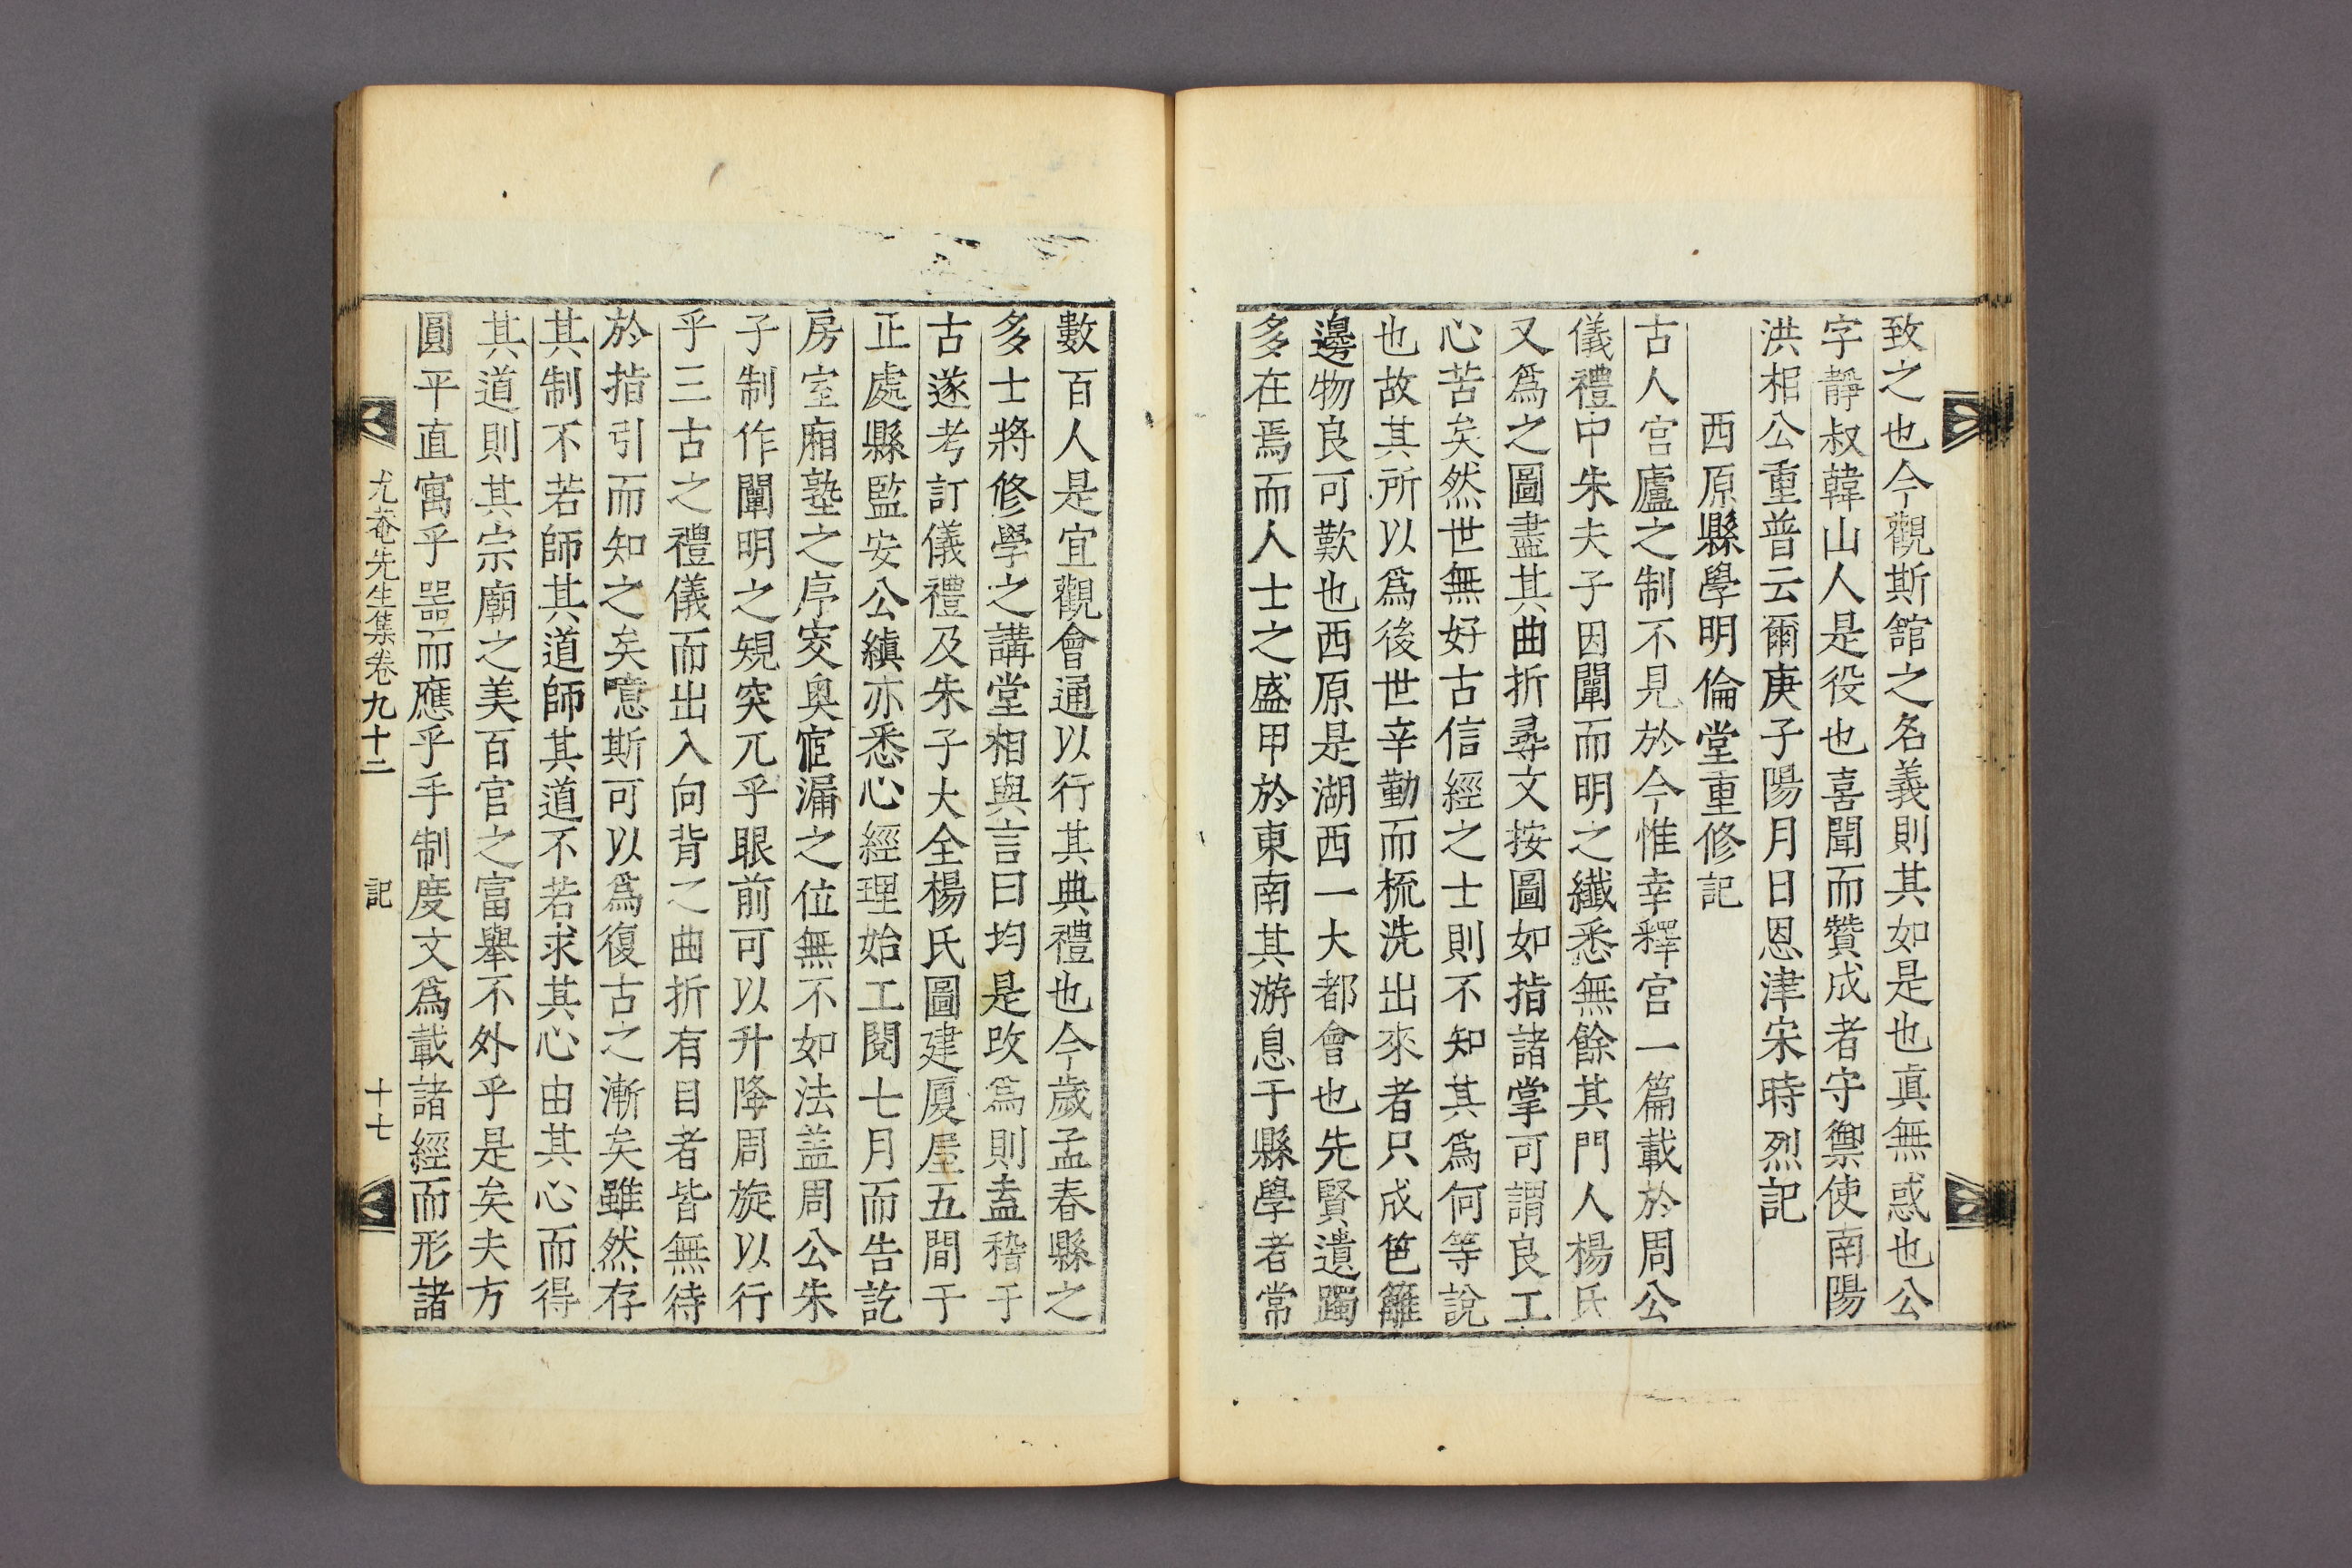 致之也今觀斯館之名義則其如是也眞無惑也公
字靜叔韓山人是役也喜聞而贊成者守禦使南陽
洪相公重普云爾庚子陽月日恩津宋時烈記
西原縣學明倫堂重修記
古人宮廬之制不見於今惟幸釋宮一篇載於周公
儀禮中朱夫子因闡而明之纖悉無餘其門人楊氏
又爲之圖盡其曲折尋文按圖如指諸掌可謂良工
心苦矣然世無好古信經之士則不知其爲何等說
也故其所以爲後世辛勤而梳洗出來者只成笆籬
邊物良可歎也西原是湖西一大都會也先賢遺躅
多在焉而人士之盛甲於東南其游息于縣學者常
數百人是宜觀會通以行其典禮也今歲孟春縣之
多士將修學之講堂相與言曰均是改爲則盍稽于
古遂考訂儀禮及朱子大全楊氏圖建厦屋五間于
正處縣監安公縝亦悉心經理始工閱七月而告訖
房室廂塾之序㝔奧宧漏之位無不如法盖周公朱
子制作闡明之䂓突兀乎眼前可以升降周旋以行
乎三古之禮儀而出入向背之曲折有目者皆無待
於指引而知之矣噫斯可以爲復古之漸矣雖然存
其制不若師其道師其道不若求其心由其心而得
其道則其宗廟之美百官之富擧不外乎是矣夫方
圓平直寓乎噐而應乎手制度文爲載諸經而形諸
尤菴先生集卷九十二 記 十七